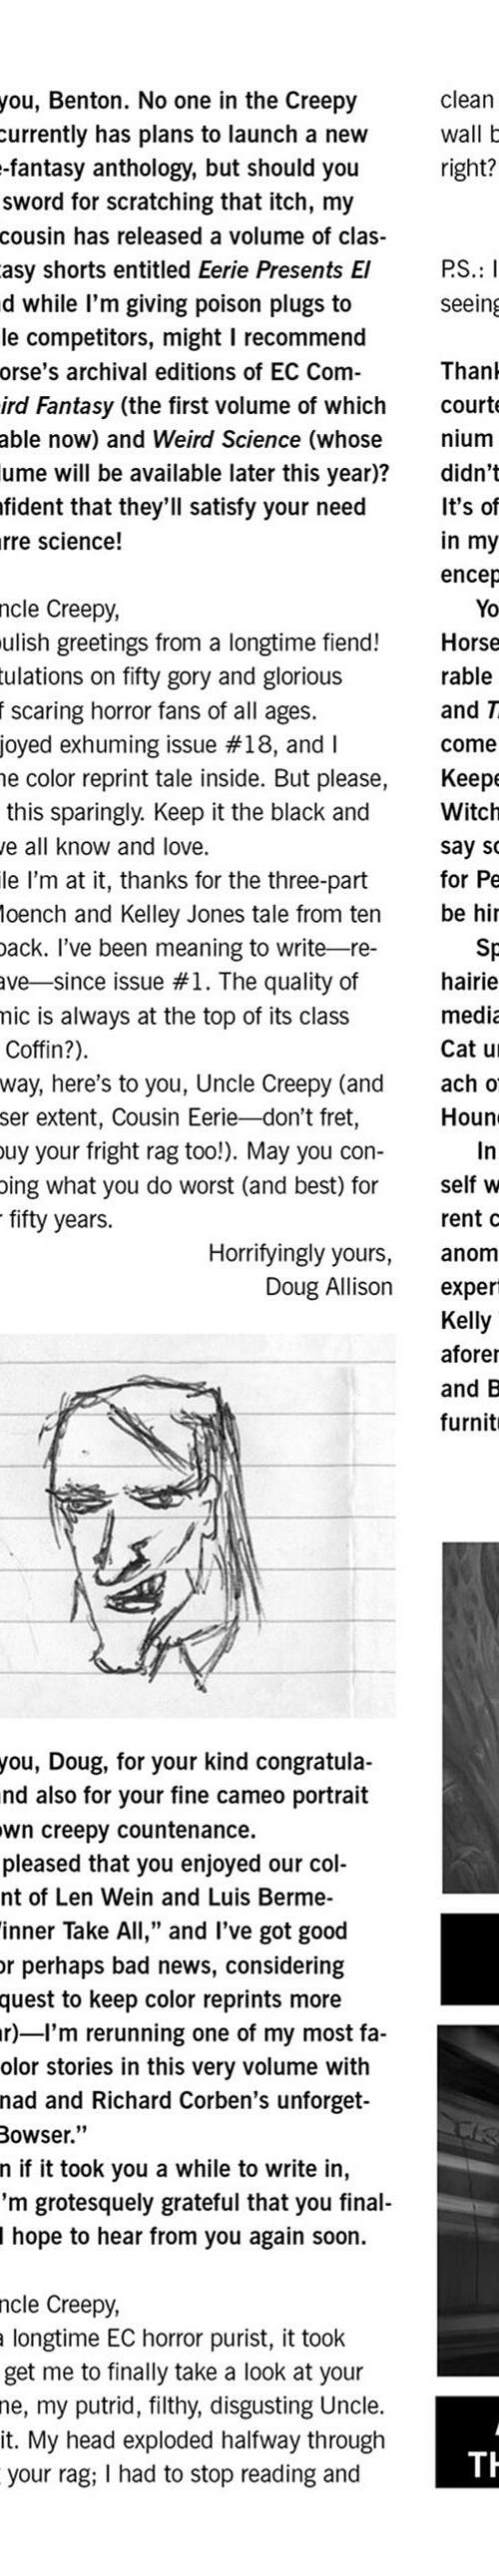 you, Benton. No one in the Creepy
currently has plans to launch a new
-fantasy anthology, but should you
sword for scratching that itch, my
cousin has released a volume of clas-
tasy shorts entitled Eerie Presents El
d while I'm giving poison plugs to
le competitors, might I recommend
orse's archival editions of EC Com-
ird Fantasy (the first volume of which
able now) and Weird Science (whose
lume will be available later this year)?
nfident that they'll satisfy your need
arre science!
ncle Creepy,
oulish greetings from a longtime fiend!
tulations on fifty gory and glorious
f scaring horror fans of all ages.
joyed exhuming issue #18, and I
he color reprint tale inside. But please,
this sparingly. Keep it the black and
we all know and love.
ile I'm at it, thanks for the three-part
Moench and Kelley Jones tale from ten
back. I've been meaning to write—re-
ave—since issue #1. The quality of
mic is always at the top of its class
Coffin?).
way, here's to you, Uncle Creepy (and
ser extent, Cousin Eerie—don't fret,
buy your fright rag too!). May you con-
oing what you do worst (and best) for
r fifty years.
Horrifyingly yours,
Doug Allison
you, Doug, for your kind congratula-
nd also for your fine cameo portrait
own creepy countenance.
pleased that you enjoyed our col-
nt of Len Wein and Luis Berme-
Winner Take All,” and I've got good
or perhaps bad news, considering
quest to keep color reprints more
ar)—I'm rerunning one of my most fa-
olor stories in this very volume with
nad and Richard Corben's unforget-
Bowser.”
n if it took you a while to write in,
I'm grotesquely grateful that you final-
I hope to hear from you again soon.
ncle Creepy,
a longtime EC horror purist, it took
get me to finally take a look at your
ne, my putrid, filthy, disgusting Uncle.
it. My head exploded halfway through
your rag; I had to stop reading and
clean
wall b
right?
P.S.: I
seeing
Thank
courte
nium
didn't
It's of
in my
encep
Yo
Horse
rable
and T
come
Keepe
Witch
say so
for Pe
be hir
Sp
hairie
media
Cat u
ach o
Houn
In
self w
rent c
anom
exper
Kelly
afore
and B
furnit
TH